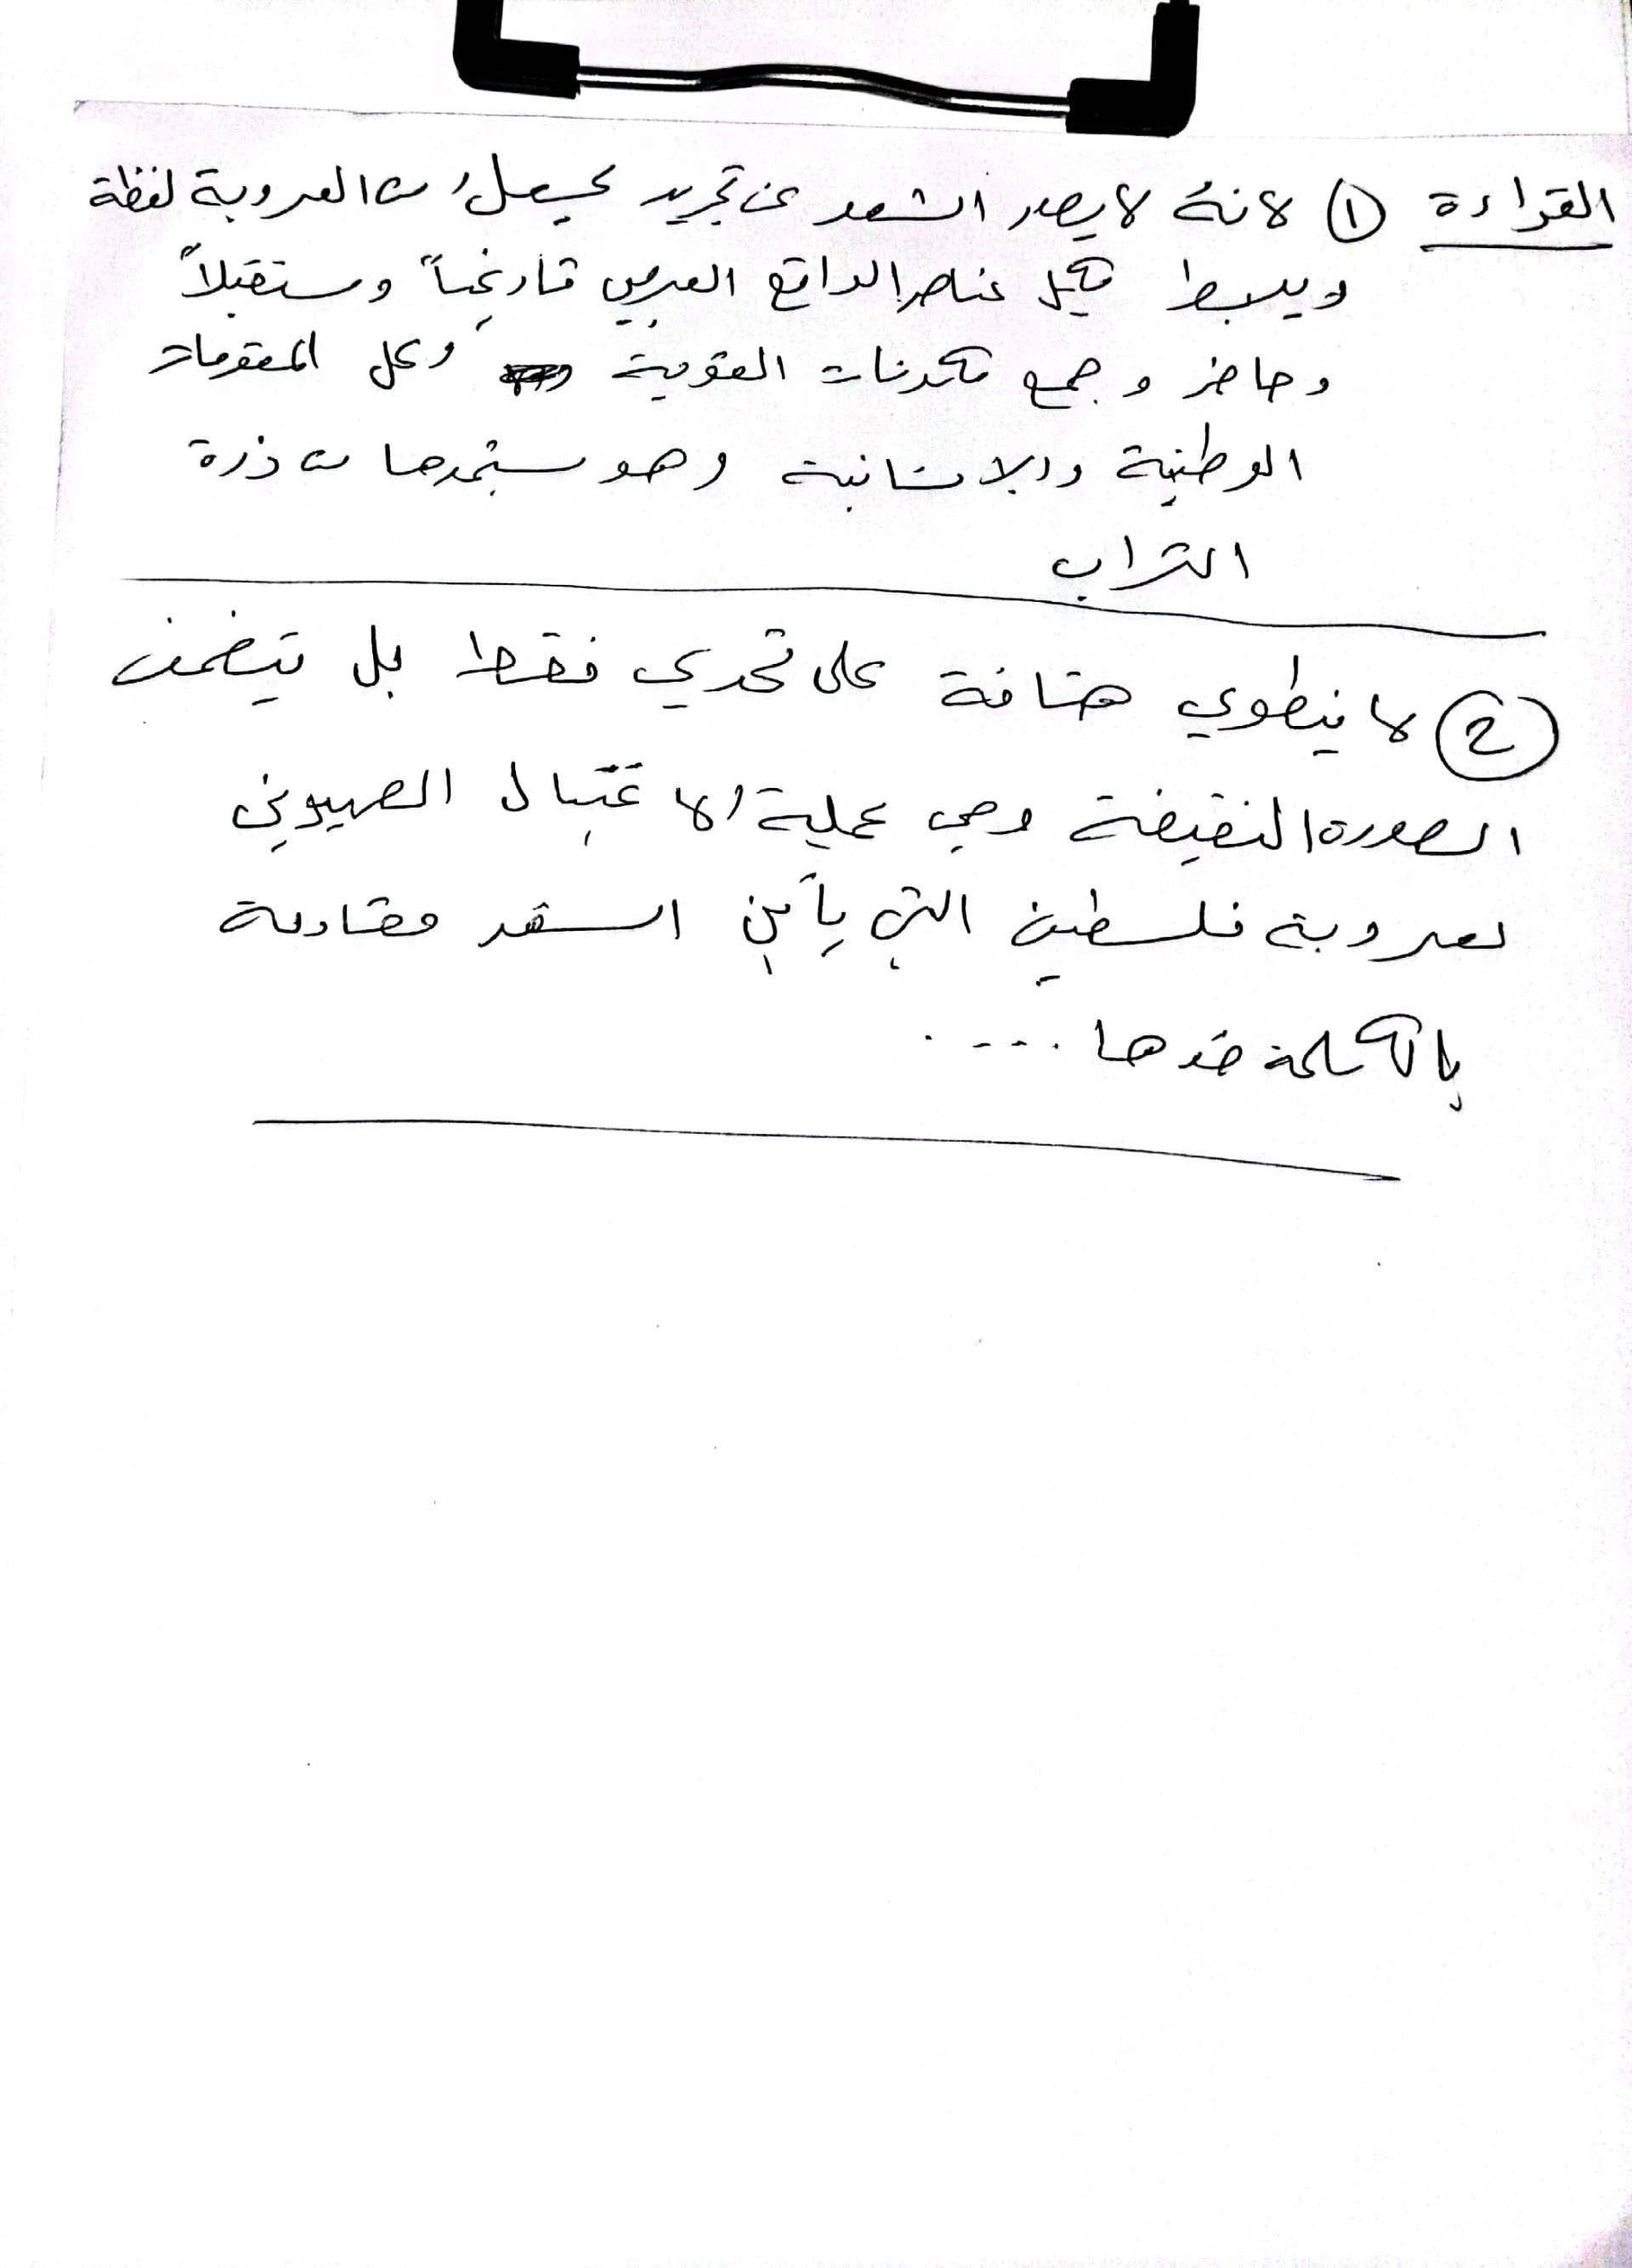 القراءة ① لانهُ لا يصدر الشعر عن تجريد يجعل من العروبة لفظة
ويربط بكل عناصر الواقع العربي تأريخياً ومستقبلاً
وحاضر وجمع مكونات القومية وكل المقومات
الوطنية والانسانية وهو يستمدها من ذرة
التراب
② لا ينطوي هتافة على تحدي فقط بل يتضمن
الصورة النقيضة وهي عملية الاغتيال الصهيوني
لعروبة فلسطين التي يأتي الشعر مقاومة
بالكلمة ضدها ....